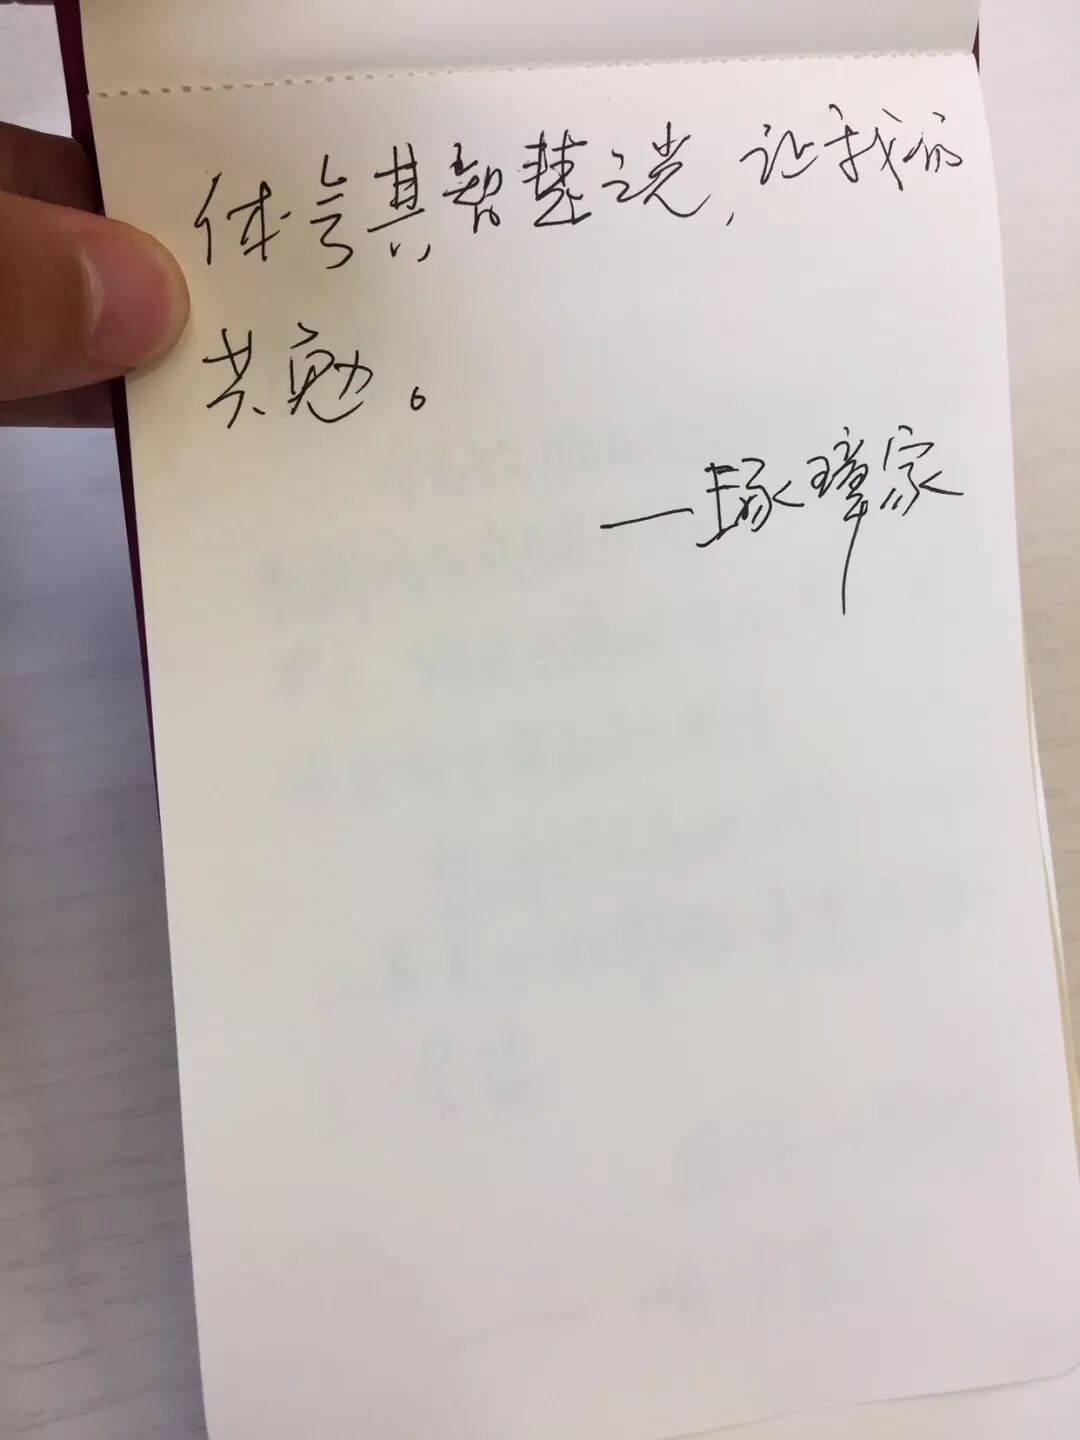 体会其智慧之光，让我们
共勉。
—琢璋家